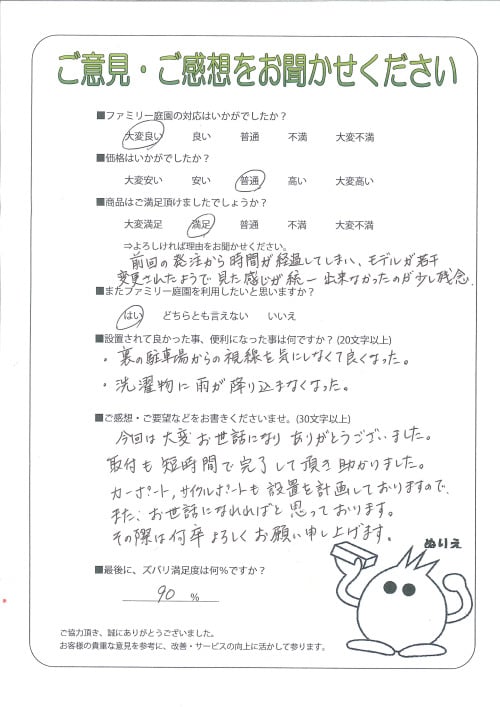 ご意見・ご感想をお聞かせください
■ファミリー庭園の対応はいかがでしたか？
大変良い 良い 普通 不満 大変不満
■価格はいかがでしたか？
大変安い 安い 普通 高い 大変高い
■商品はご満足頂けましたでしょうか？
大変満足 満足 普通 不満 大変不満
⇒よろしければ理由をお聞かせください。
前回の発注から時間が経過してしまい、モデルが若干
変更されたようで見た感じが統一出来なかったのが少し残念。
■またファミリー庭園を利用したいと思いますか？
はい どちらとも言えない いいえ
■設置されて良かった事、便利になった事は何ですか？(20文字以上)
・裏の駐車場からの視線を気にしなくて良くなった。
・洗濯物に雨が降り込まなくなった。
■ご感想・ご要望などをお書きくださいませ。(30文字以上)
今回は大変お世話になりありがとうございました。
取付も短時間で完了して頂き助かりました。
カーポート,サイクルポートも設置を計画しておりますので、
また、お世話になれればと思っております。
その際は何卒よろしくお願い申し上げます。
ぬりえ
■最後に、ズバリ満足度は何%ですか？
90 %
ご協力頂き、誠にありがとうございました。
お客様の貴重な意見を参考に、改善・サービスの向上に活かして参ります。